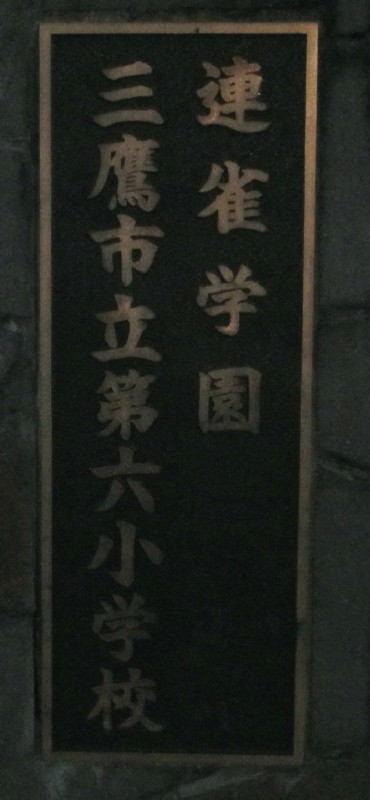 連雀学園
三鷹市立第六小学校